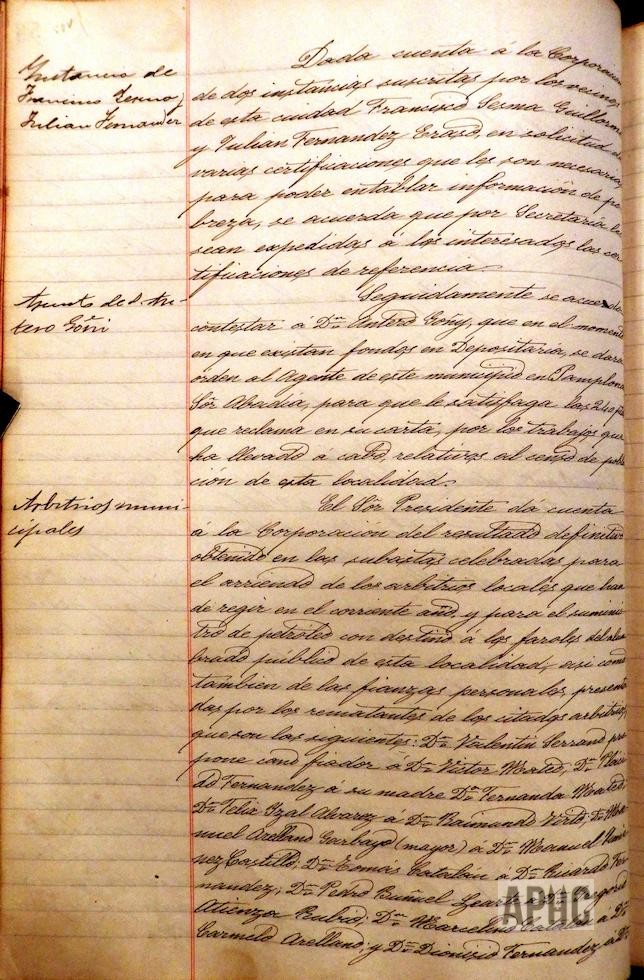 Instancia de
Francisco Serma y
Julian Fernandez
Dada cuenta á la Corporacion
de dos instancias suscritas por los vecinos
de esta cuidad Francisco Serma Guillermo
y Julian Fernandez Eraso, en solicitud de
varias certificaciones que les son necesarias
para poder entablar información de po
breza, se acuerda que por Secretaría les
sean expedidas á los interesados las cer
tificaciones de referencia.
Asunto de D. An-
tero Goñi
Seguidamente se acuerda
contestar á Dn. Antero Goñy, que en el momento
en que existan fondos en Depositaría, se dará
orden al Agente de este municipio en Pamplona
Sór Abadia, para que le satisfaga las 240 ptas
que reclama en su carta, por los trabajos que
ha llevado á cabo, relativos al censo de pobla
ción de esta localidad.
Arbitrios muni-
cipales
El Sór Presidente dá cuenta
á la Corporación del resultado definitivo
obtenido en las subastas celebradas para
el arriendo de los arbitrios locales que han
de regir en el corriente año, y para el suminis
tro de petróleo con destino á los faroles del alum
brado público de esta localidad, asi como
tambien de las fianzas personales, presenta
das por los rematantes de los citados arbitrios,
que son los siguientes: Dn. Valentin Serrano pro
pone como fiador á Dn. Victor Mateo; Dn. Pláci
do Fernandez á su madre Dña. Fernanda Mateo;
Dn. Felix Izal Alvarez á Dn. Raimundo Virto; Dn. Ma
nuel Arellano Garbayo (mayor) á Dn. Manuel
nez Castillo; Dn. Tomás Catalan á Dn. Ricardo Fer
nandez; Dn. Pedro Buñuel á Dn. Gregorio
Atienza Rubio; Dn. Marcelino Catalan á Dn.
Carmelo Arellano; y Dn. Dionisio Fernandez á Dn.
APHG